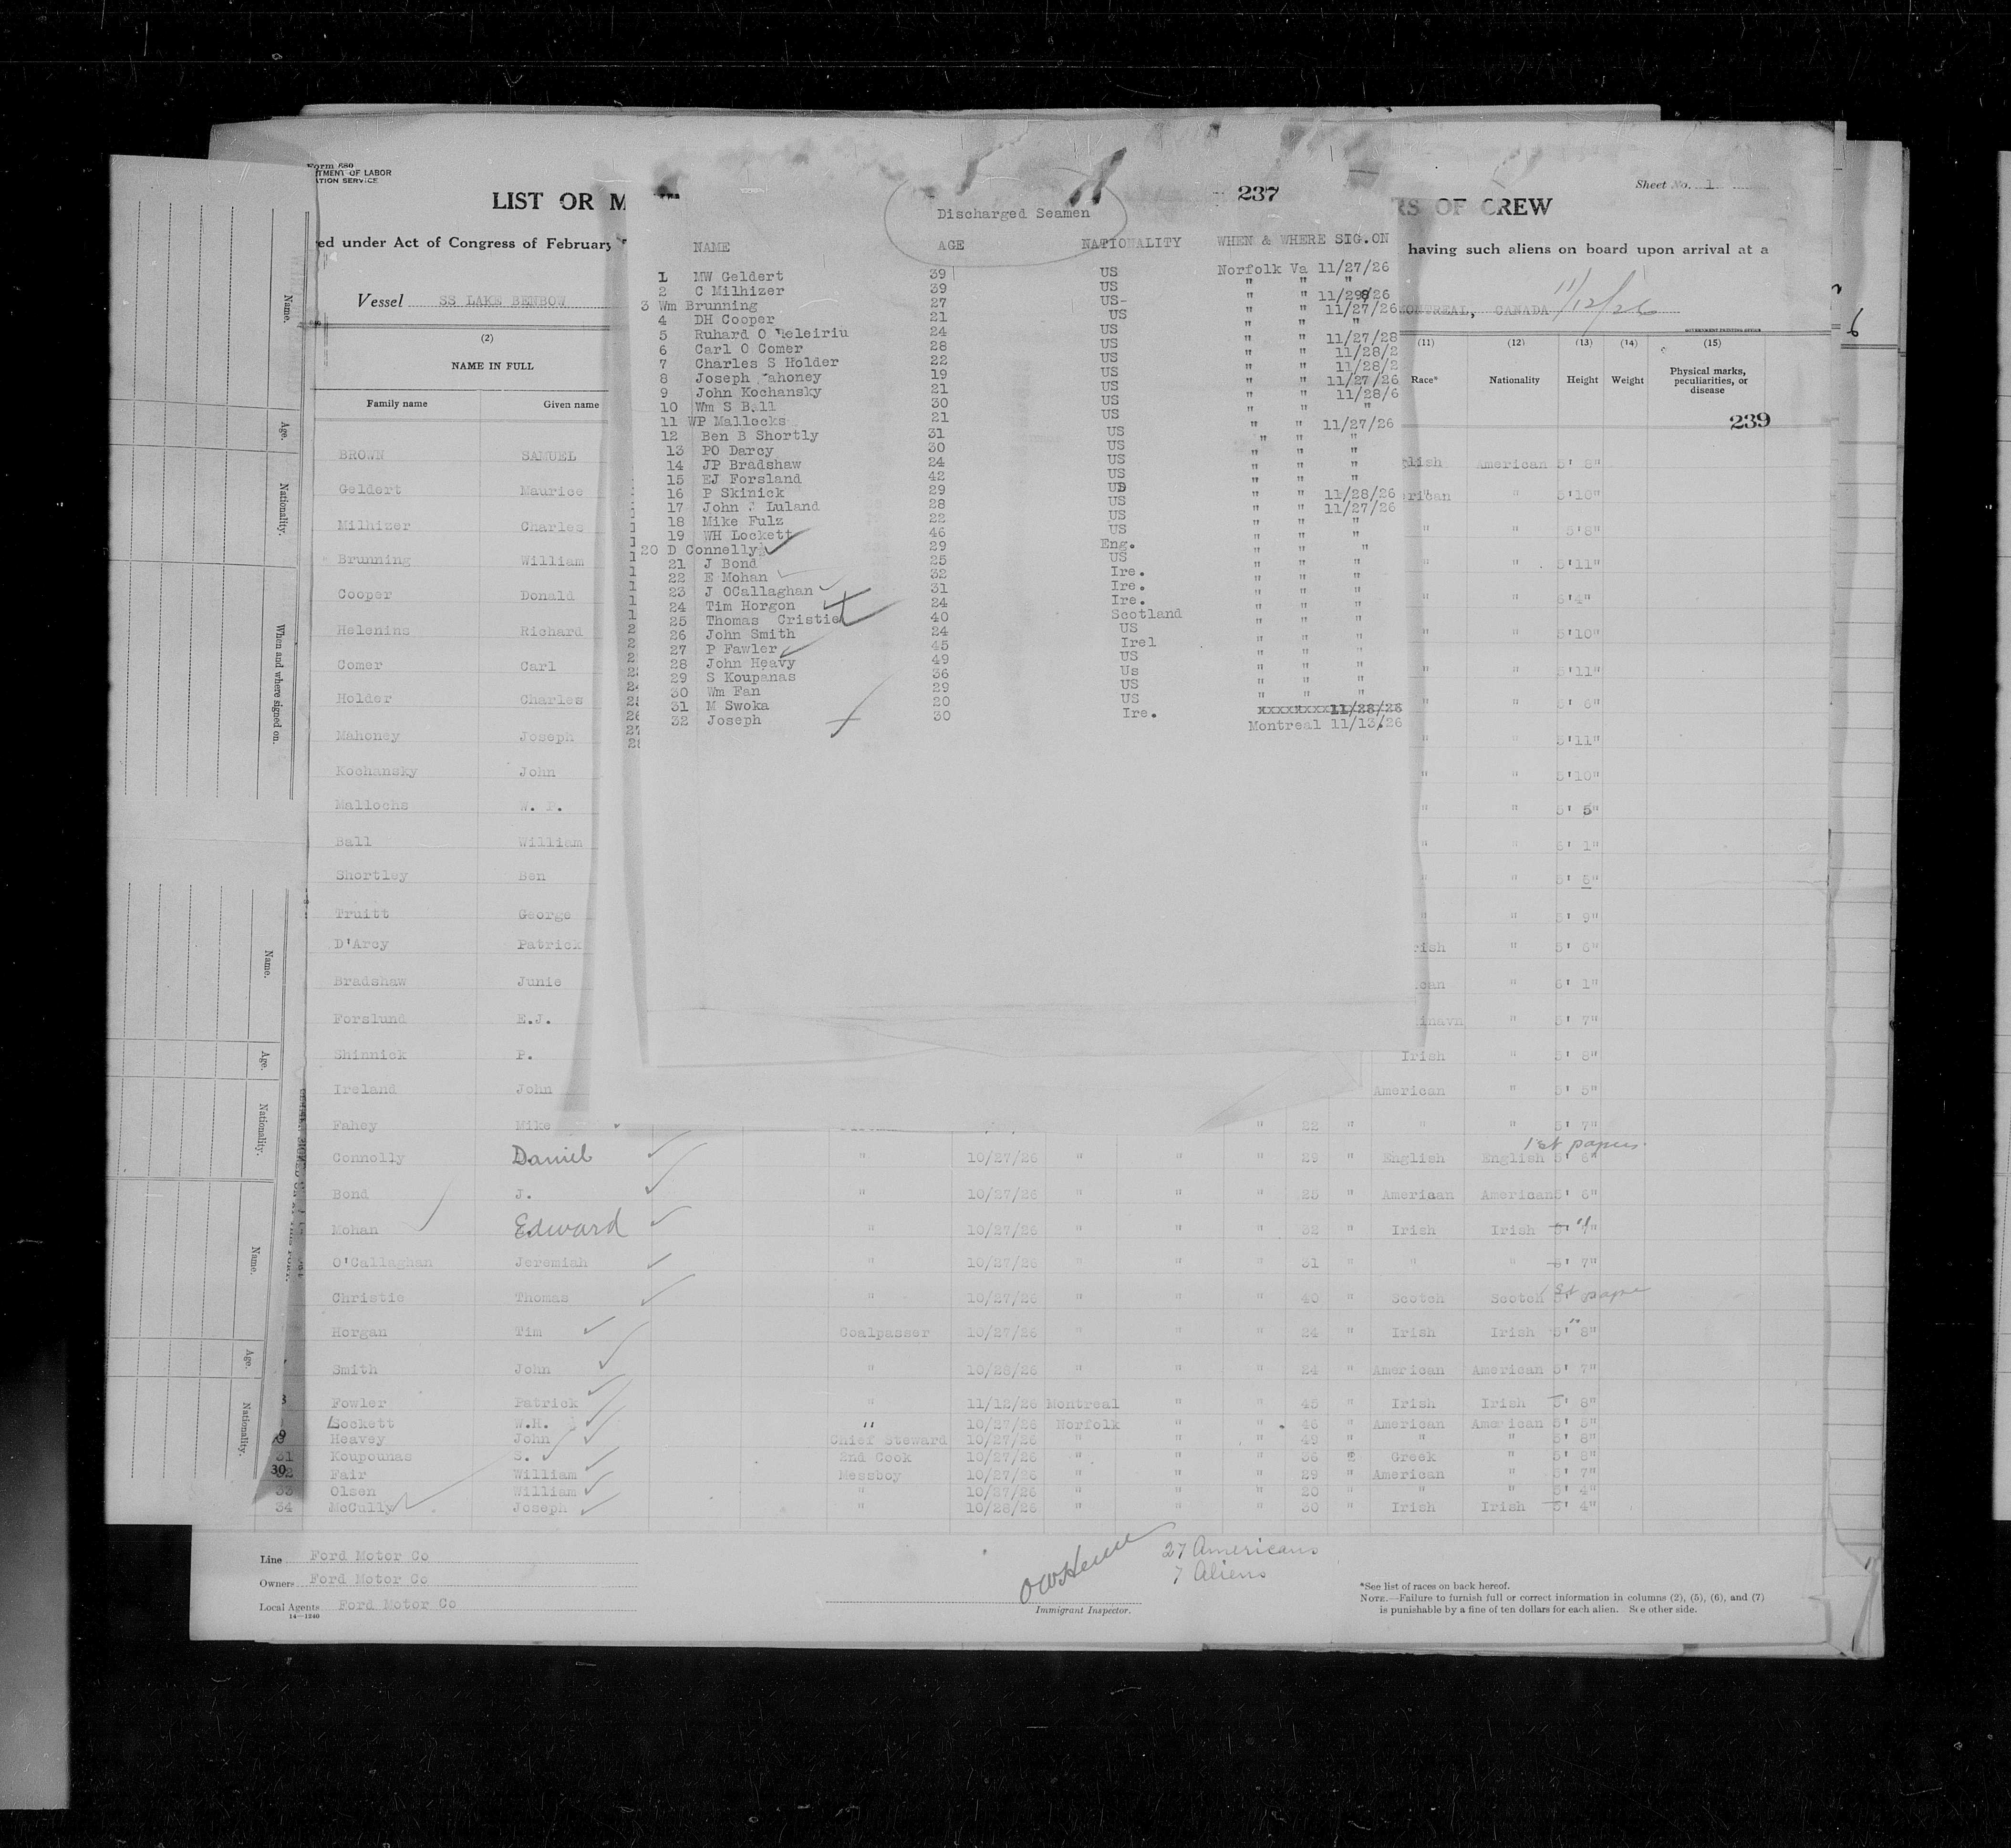 Form 680
TMENT OF LABOR
ATION SERVICE
Sheet No. 1
LIST OR M
RS OF CREW
ed under Act of Congress of February
having such aliens on board upon arrival at a
Vessel SS LAKE BENBOW
MONTREAL, CANADA 11/12/26
GOVERNMENT PRINTING OFFICE
(2) (11) (12) (13) (14) (15)
NAME IN FULL Race* Nationality Height Weight Physical marks, peculiarities, or disease
Family name Given name
239
237
Discharged Seamen
NAME AGE NATIONALITY WHEN & WHERE SIG.ON
1 MW Geldert 39 US Norfolk Va 11/27/26
2 C Milhizer 39 US " " "
3 Wm Brunning 27 US- " " 11/298/26
4 DH Cooper 21 US " " 11/27/26
5 Ruhard O Heleiriu 24 US " " "
6 Carl O Comer 28 US " " 11/27/28
7 Charles S Holder 22 US " " 11/28/2
8 Joseph ahoney 19 US " " 11/28/2
9 John Kochansky 21 US " " 11/27/26
10 Wm S Ball 30 US " " 11/28/6
11 WP Mallocks 21 US " " "
12 Ben B Shortly 31 US " " 11/27/26
13 PO Darcy 30 US " " "
14 JP Bradshaw 24 US " " "
15 EJ Forsland 42 US " " "
16 P Skinick 29 US " " "
17 John Luland 28 US " " 11/28/26
18 Mike Fulz 22 US " " 11/27/26
19 WH Lockett 46 US " " "
20 D Connelly 29 Eng. " " "
21 J Bond 25 US " " "
22 E Mohan 32 Ire. " " "
23 J OCallaghan 31 Ire. " " "
24 Tim Horgon 24 Ire. " " "
25 Thomas Cristie 40 Scotland " " "
26 John Smith 24 US " " "
27 P Fawler 45 Irel " " "
28 John Heavy 49 US " " "
29 S Koupanas 36 Us " " "
30 Wm Fan 29 US " " "
31 M Swoka 20 US xxxxxxxx11/28/26
32 Joseph 30 Ire. Montreal 11/13/26
BROWN SAMUEL glish American 5' 8"
Geldert Maurice rican " 5'10"
Milhizer Charles " " 5'8"
Brunning William " " 5'11"
Cooper Donald " 6'4"
Helenins Richard " " 5'10"
Comer Carl " " 5'11"
Holder Charles " " 5' 6"
Mahoney Joseph " " 5'11"
Kochansky John " " 5'10"
Mallochs W. P. " " 5' 5"
Ball William " " 6' 1"
Shortley Ben " " 5' 5"
Truitt George " " 5' 9"
D'Arcy Patrick rish " 5' 6"
Bradshaw Junie can " 6' 1"
Forslund E.J. inavn " 5' 7"
Shinnick P. Irish " 5' 8"
Ireland John American " 5' 5"
Fahey Mike " 22 " " " 5' 7"
1st papers
Connolly Daniel " 10/27/26 " " " 29 " English English 5' 6"
Bond J. " 10/27/26 " " " 25 " American American 5' 6"
Mohan Edward " 10/27/26 " " " 32 " Irish Irish
O'Callaghan Jeremiah " 10/27/26 " " " 31 " " " 5' 7"
Christie Thomas " 10/27/26 " " " 40 " Scotch Scotch 1st pape
Horgan Tim Coalpasser 10/27/26 " " " 24 " Irish Irish 5' 8"
Smith John " 10/28/26 " " " 24 " American American 5' 7"
Fowler Patrick " 11/12/26 Montreal " " 45 " Irish Irish 5' 8"
Lockett W.H. " 10/27/26 Norfolk " " 46 " American American 5' 5"
Heavey John Chief Steward 10/27/26 " " " 49 " " " 5' 8"
31 Koupounas S. 2nd Cook 10/27/26 " " " 36 " Greek " 5' 8"
Fair William Messboy 10/27/26 " " " 29 " American " 5' 7"
33 Olsen William " 10/27/26 " " " 20 " " " 5' 4"
34 McCully Joseph " 10/28/26 " " " 30 " Irish Irish 5' 4"
30
Line Ford Motor Co
Owners Ford Motor Co
Local Agents Ford Motor Co
14—1240
27 Americans
7 Aliens
Immigrant Inspector.
*See list of races on back hereof.
NOTE.—Failure to furnish full or correct information in columns (2), (5), (6), and (7)
is punishable by a fine of ten dollars for each alien. See other side.
Name.
Age.
Nationality.
When and where signed on.
Name.
Age.
Nationality.
Name.
Age.
Nationality.